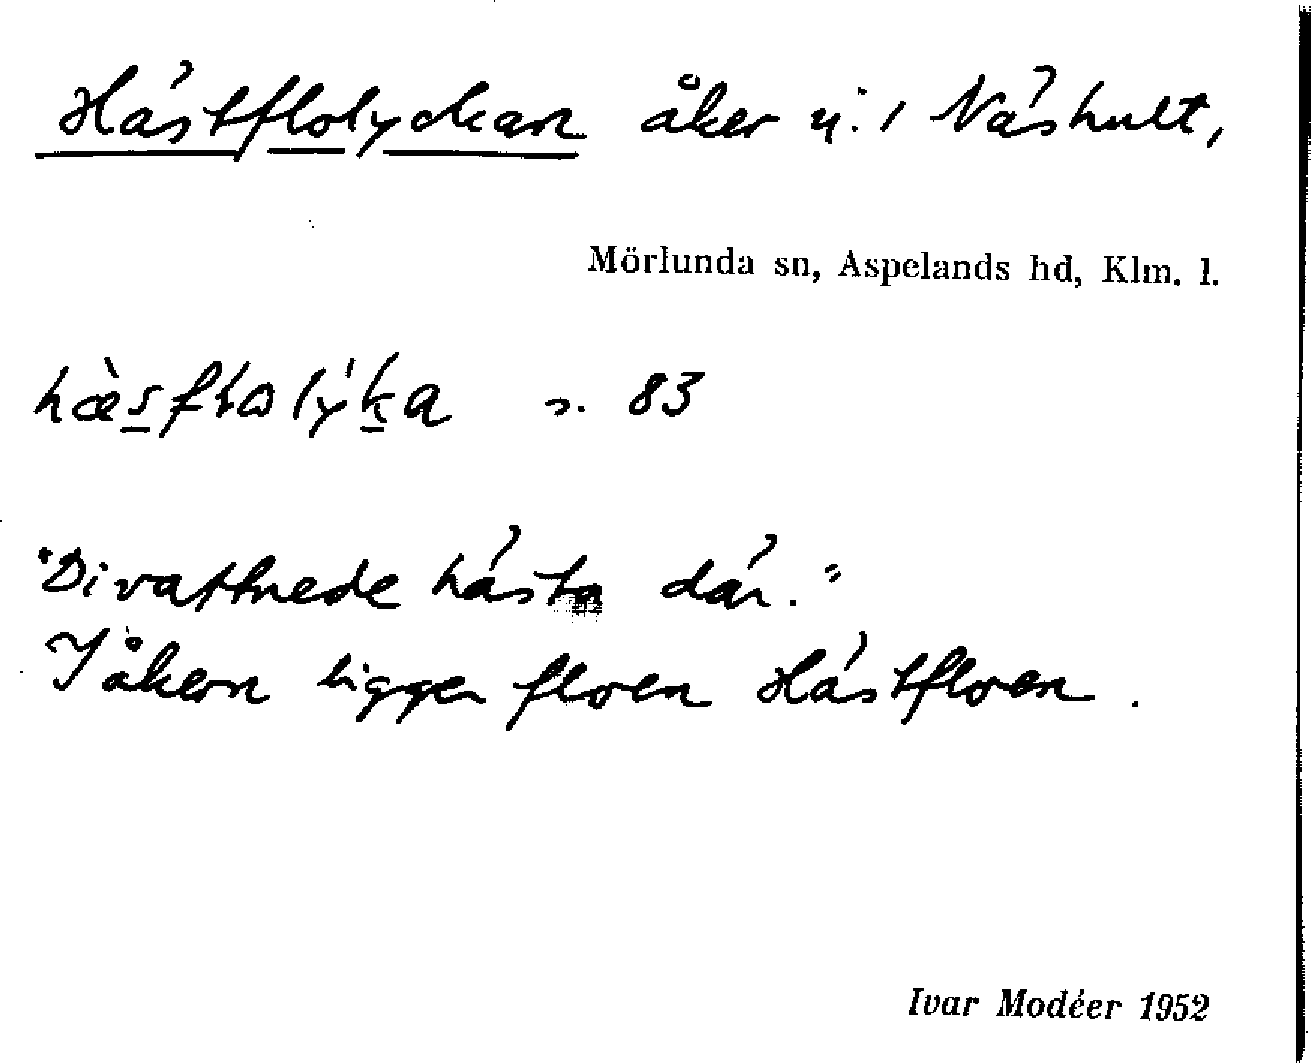 Hästflolyckan åker u: / Näshult,
Mörlunda sn, Aspelands hd, Klm. l.
s. 83
"Di vattnede hästa där."
I åkern ligger floen Hästfloen.
Ivar Modéer 1952